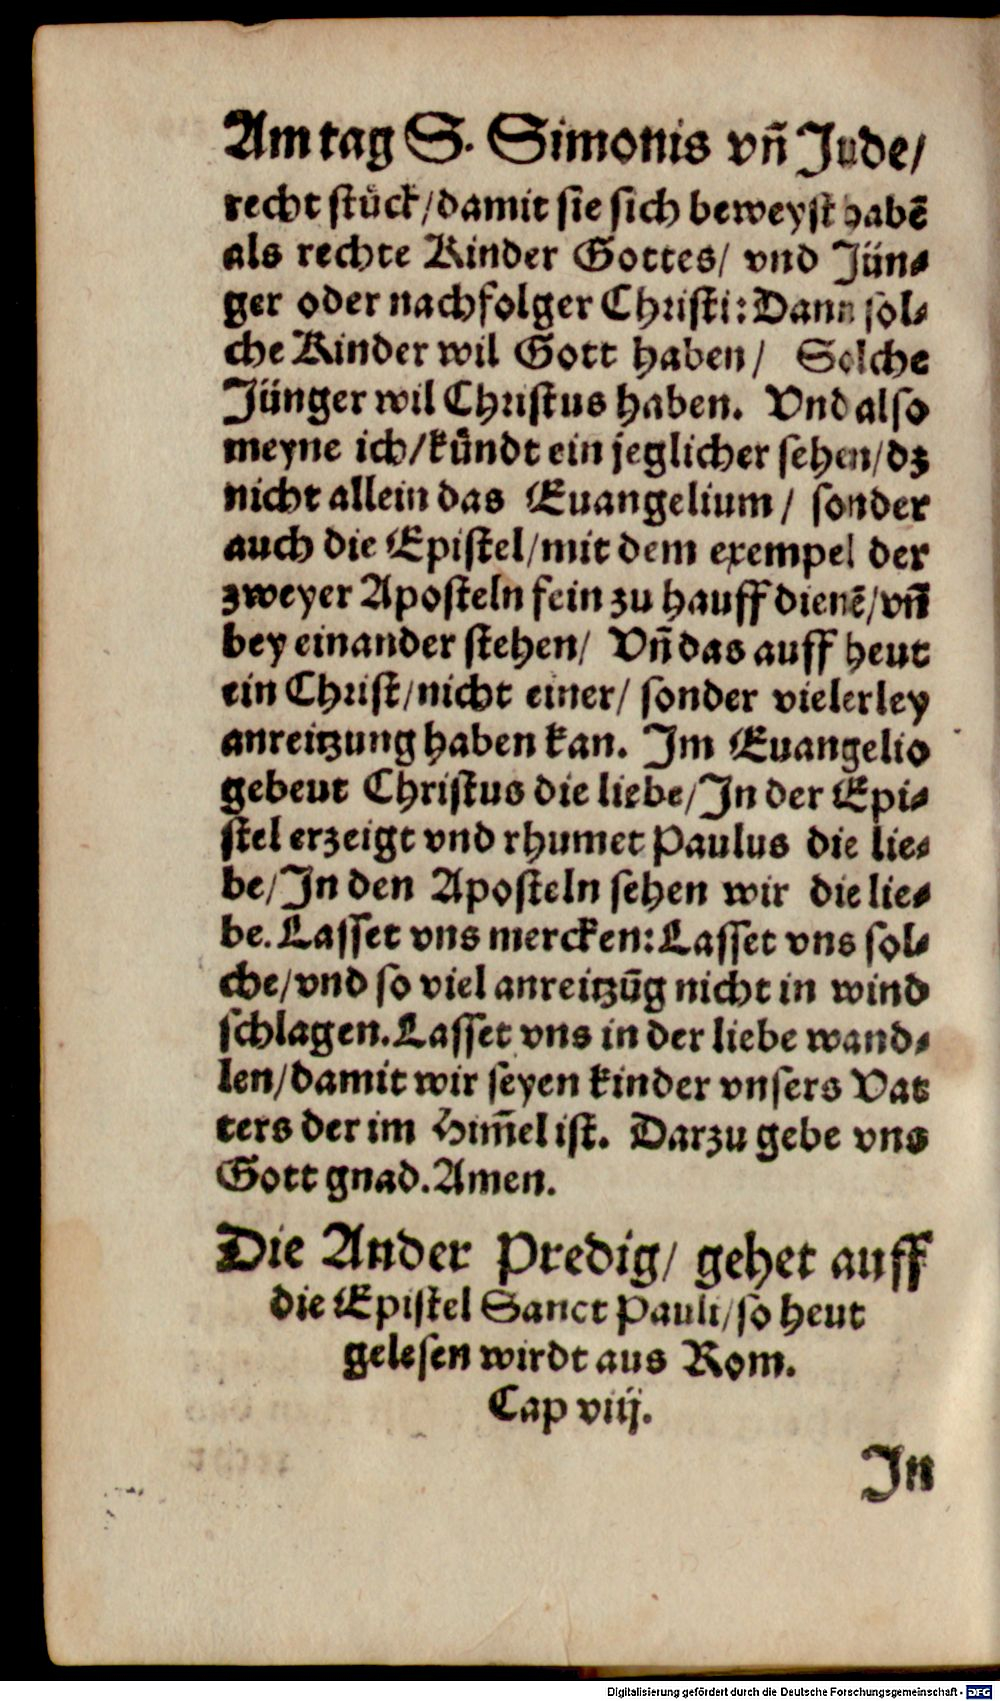 Am tag S. Simonis vn̄ Jude/
recht stück/damit sie sich beweyst habē
als rechte Kinder Gottes/ vnd Jün⸗
ger oder nachfolger Christi: Dann sol⸗
che Kinder wil Gott haben/ Solche
Jünger wil Christus haben. Vnd also
meyne ich/kündt ein jeglicher sehen/dz
nicht allein das Euangelium/ sonder
auch die Epistel/mit dem exempel der
zweyer Aposteln fein zu hauff dienē/vn̄
bey einander stehen/ Vn̄ das auff heut
ein Christ/nicht einer/ sonder vielerley
anreitzung haben kan. Im Euangelio
gebeut Christus die liebe/In der Epi⸗
stel erzeigt vnd rhumet Paulus die lie⸗
be/In den Aposteln sehen wir die lie⸗
be. Lasset vns mercken: Lasset vns sol⸗
che/vnd so viel anreitzūg nicht in wind
schlagen. Lasset vns in der liebe wand⸗
len/damit wir seyen kinder vnsers Vat
ters der im Him̄el ist. Darzu gebe vns
Gott gnad. Amen.
Die Ander Predig/ gehet auff
die Epistel Sanct Pauli/so heut
gelesen wirdt aus Rom.
Cap viij.
In
Digitalisierung gefördert durch die Deutsche Forschungsgemeinschaft - DFG